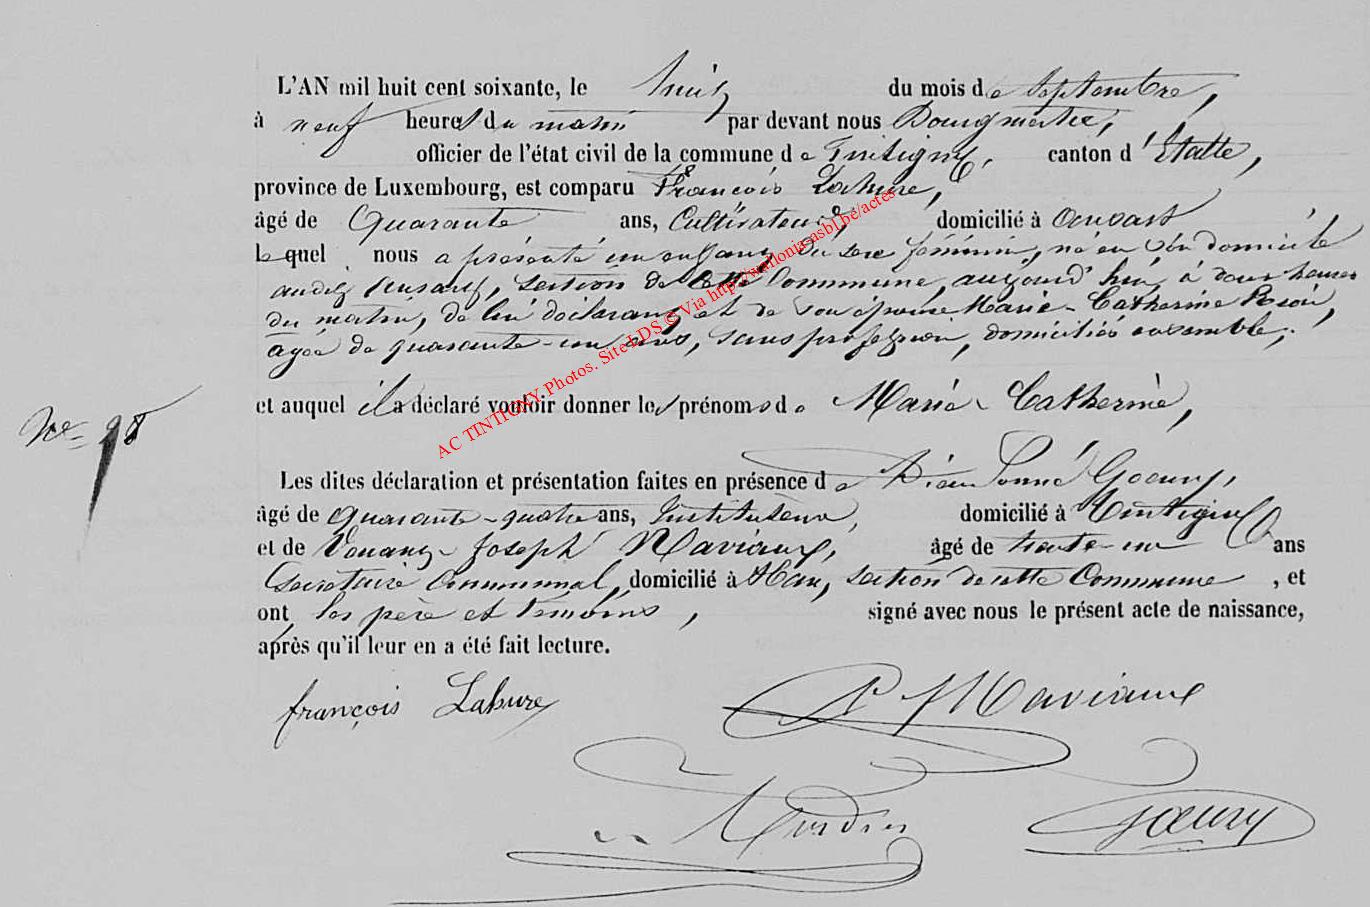 L'AN mil huit cent soixante, le huit du mois de Septembre,
à neuf heures du matin par devant nous Bourgmestre,
officier de l'état civil de la commune de Tintigny, canton d'Etalle,
province de Luxembourg, est comparu François Lahure,
âgé de Quarante ans, Cultivateur, domicilié à Ansart
lequel nous a présenté un enfant du sexe féminin, né en son domicile
audit Ansart, section de cette Commune, aujourd'hui, à deux heures
du matin, de lui déclarant et de son épouse Marie-Catherine
agée de quarante-un ans, sans profession, domiciliés ensemble,
et auquel il a déclaré vouloir donner les prénoms de Marie-Catherine,
No 98
Les dites déclaration et présentation faites en présence de Dieudonné Goeury,
âgé de quarante-quatre ans, Instituteur, domicilié à Tintigny
et de Joseph Maviaux, âgé de trente-un ans
Secrétaire Communal, domicilié à Han, section de cette Commune, et
ont les père et témoins, signé avec nous le présent acte de naissance,
après qu'il leur en a été fait lecture.
françois Lahure Maviaux
Goeury
AC TINTIGNY. Photos. Site LDS © Via http://wallonia-asbl.be/actes